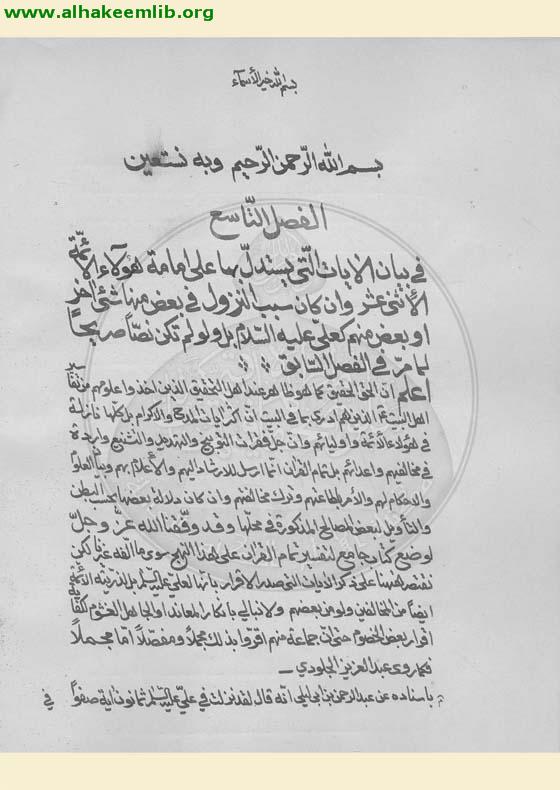 www.alhakeemlib.org
بسم الله خير الأسماء
بسم الله الرّحمن الرّحيم وبه نستعين
الفصل التّاسع
في بيان الايات الّتي يستدلّ بها على امامة هؤلاء الأئمّة
الأثنى عشر وان كان سبب النزول في بعض منها شئ اخر
او بعض منهم كعليّ عليه السّلام بل ولو لم تكن نصّا صريحًا
لما مرّ في الفصل السّابق
اعلم ان الحق الحقيق كما هو ظاهر عند اهل التحقيق الذين اخذوا علومهم من تفاسير
اهل البيت الذين هم ادرى بما في البيت انّ اكثر ايات المدح والاكرام بل كلّها نازلة
في هؤلاء الأئمة واوليائهم وانّ جلّ فقرات التوبيخ والتهديد والتشنيع واردة
في مخالفيهم واعدائهم بل تمام القران انما ارسل للارشاد اليهم والأعلام بهم وبيان العلوم
والاحكام لهم والأمر باطاعتهم وترك مخالفتهم وان كان دلالة بعضها بحسب البطن
والتأويل لبعض المصالح المذكورة في محلّها وقد وفّقنا الله عزّ وجلّ
لوضع كتاب جامع لتفسير تمام القران على هذا النهج سوى ما الفه غيرنا لكن
نقتصر ههنا على ذكر الايات التي صدر الاقرار بانها لعلي عليه السلم بل لذريته الائمّة
ايضا من المخالفين ولو من بعضهم ولا نبالي بانكار المعاند او الجاهل
اقرار بعض الخصوم حتى انّ جماعة منهم اقرّوا بذلك مجملا ومفصّلا امّا مجملا
فكما روى عبد العزيز الجلودي
باسناده عن عبد الرحمن بن ابي ليلى انّه قال لقد نزلت في عليّ عليه السلم ثمانون اية صفوًا في